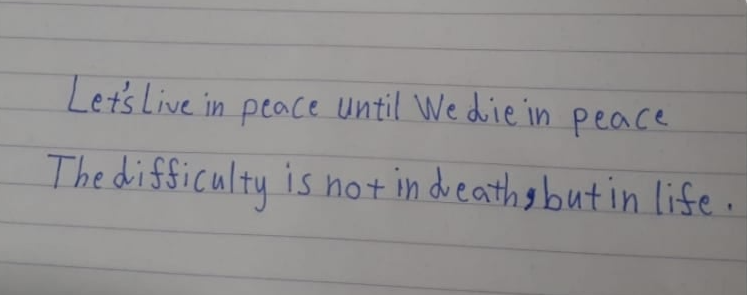 Let's Live in peace until We die in peace
The difficulty is not in death, but in life.